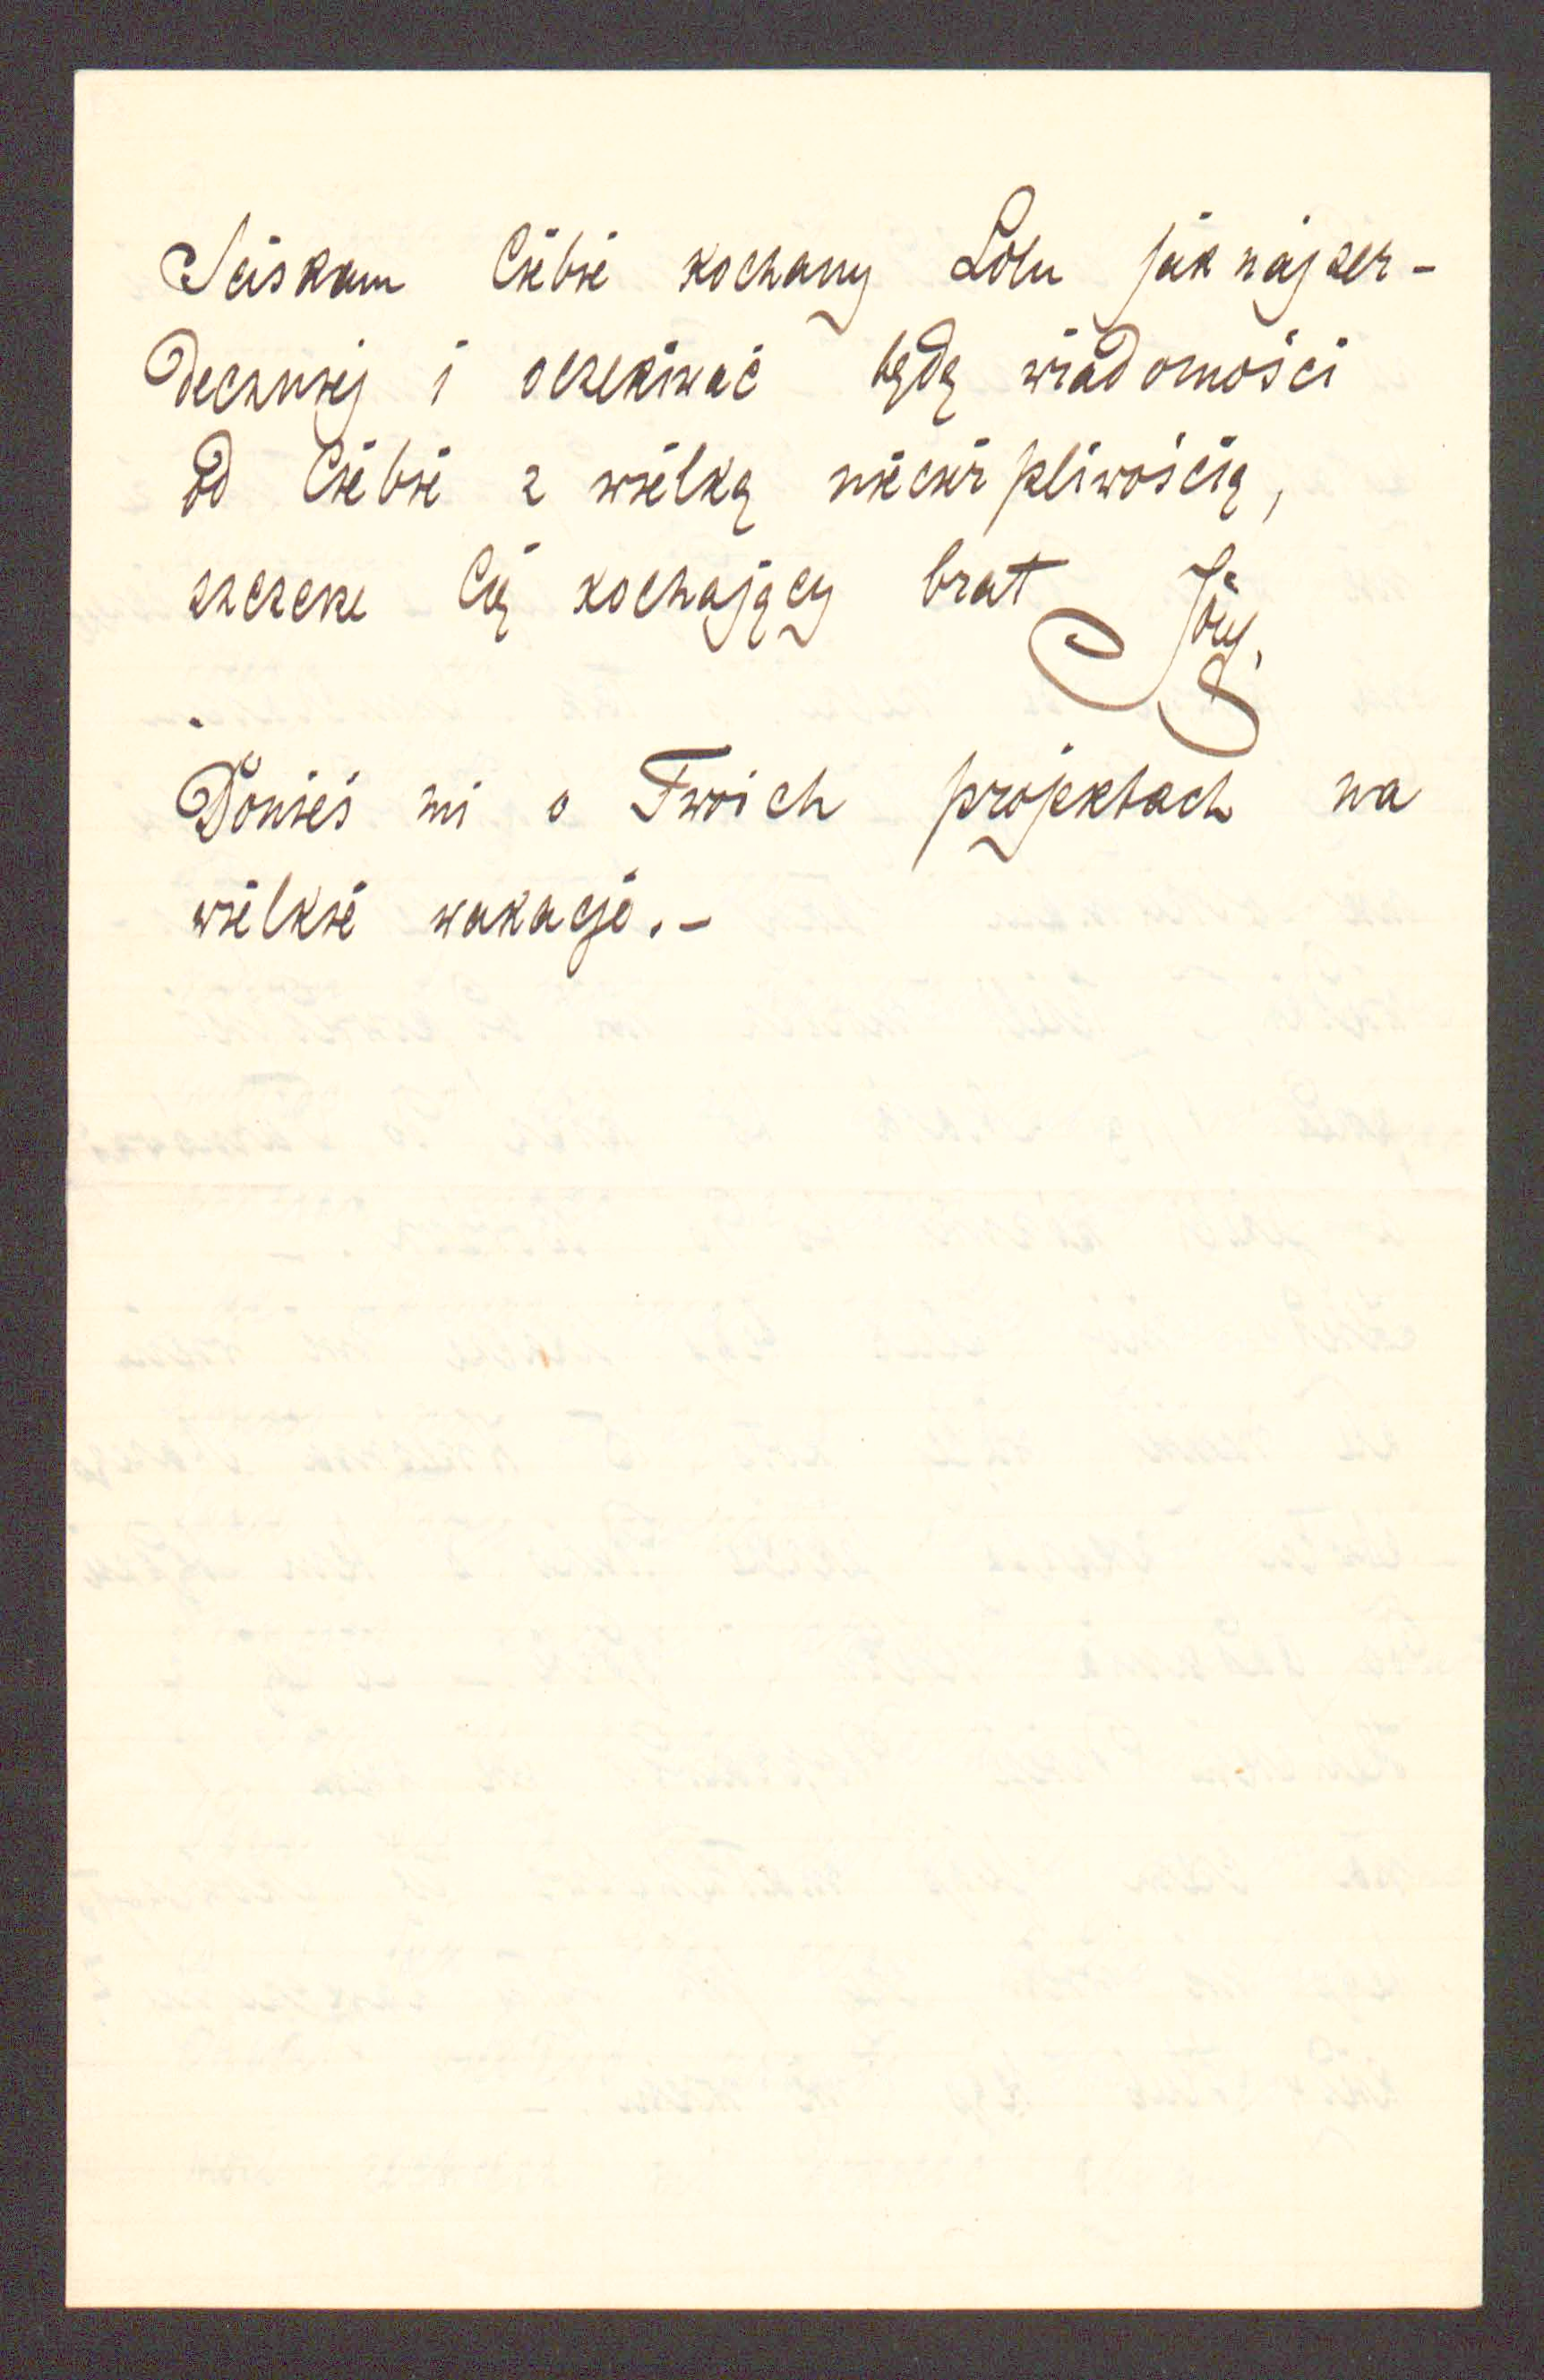 Sciskam Ciebie kochany Lolu jak najser-
deczniej i oczekiwać będę wiadomości
od Ciebie z wielką niecierpliwością,
szczerze Cię kochający brat
Donieś mi o Twoich projektach na
wielkie wakacje.-